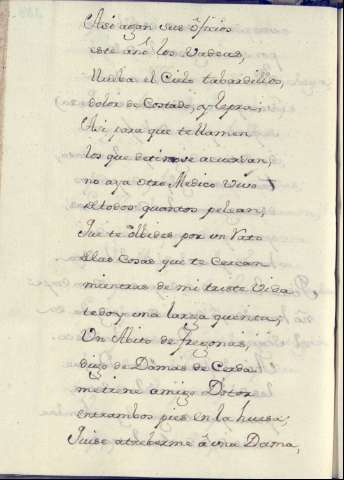 Asi agan sus ôficios
este año los Vadeas,
llueba el Cielo tabardillos,
dolor de Costado, y lepra;
Asi para que te llamen
los que de ti no se acuerdan,
no aya otro Medico vivo
de todos quantos pelean,
Que te ôlbides por un rato
de las Cosas que te cercan
mientras de mi triste vida
te doy una larga quenta;
Un Abito de fregonas,
digo de Dâmas de Cerda
me tiene amigo Dotor
entrambos pies en la huesa;
Quise atreberme â una Dama,